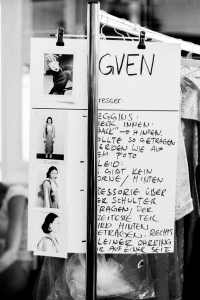 GVEN
resser:
EGGINS:
WERK INNEN:
BACK" → HINTEN.
OLLTE SO GETRAGEN
ERDEN WIE AUF
EM FOTO
LEID:
S GIBT KEIN
ORNE/HINTEN
TESSORIE ÜBER
ER SCHULTER
TRAGEN; DER
EITESTE TEIL
IRD HINTEN
ETRAGEN. RECHTS
LEINER OARRING
UR AUF EINER SEITE